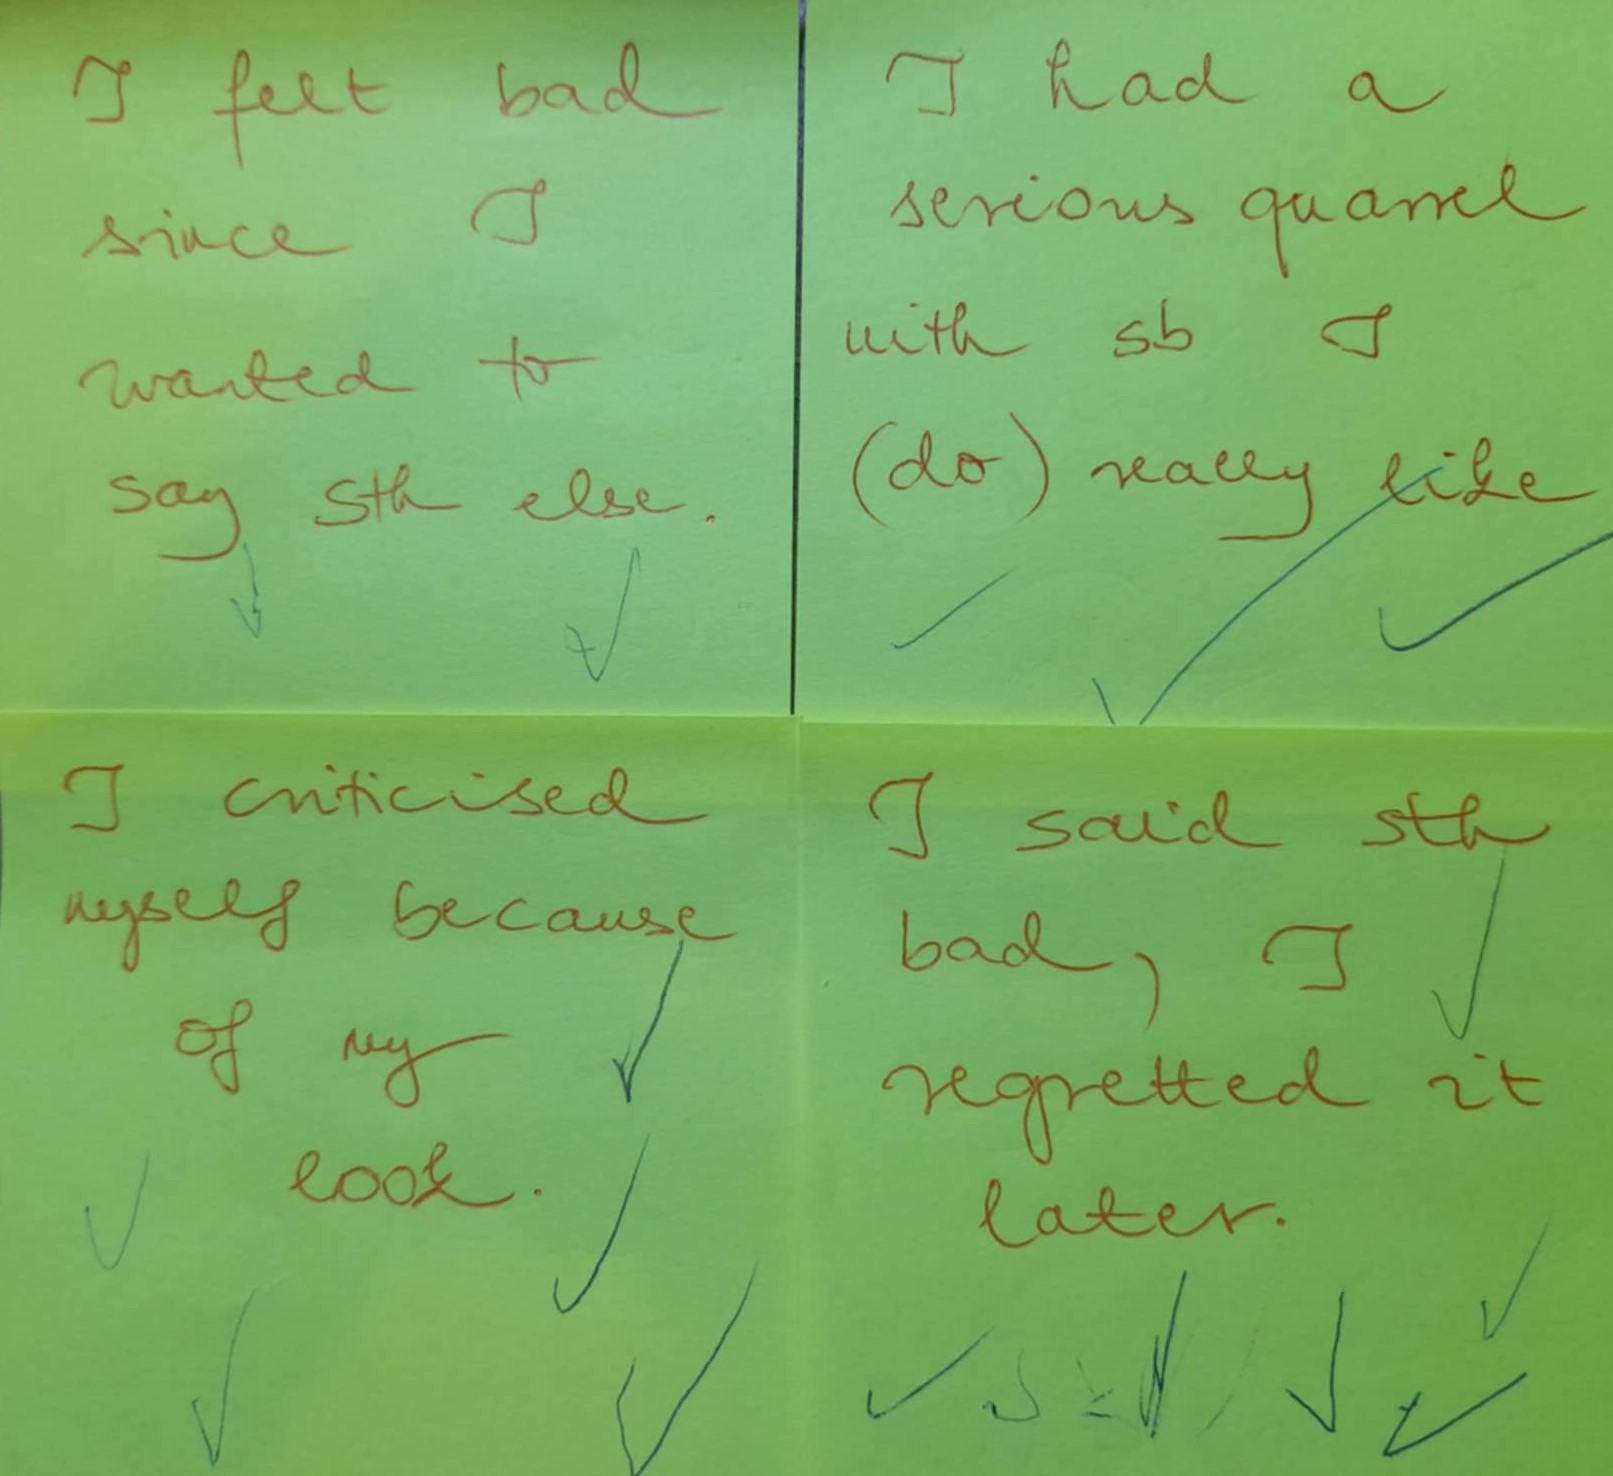 I felt bad
since I
wanted to
say sth else.
I had a
serious quarrel
with sb I
(do) really like
I criticised
myself because
of my
look.
I said sth
bad, I
regretted it
later.